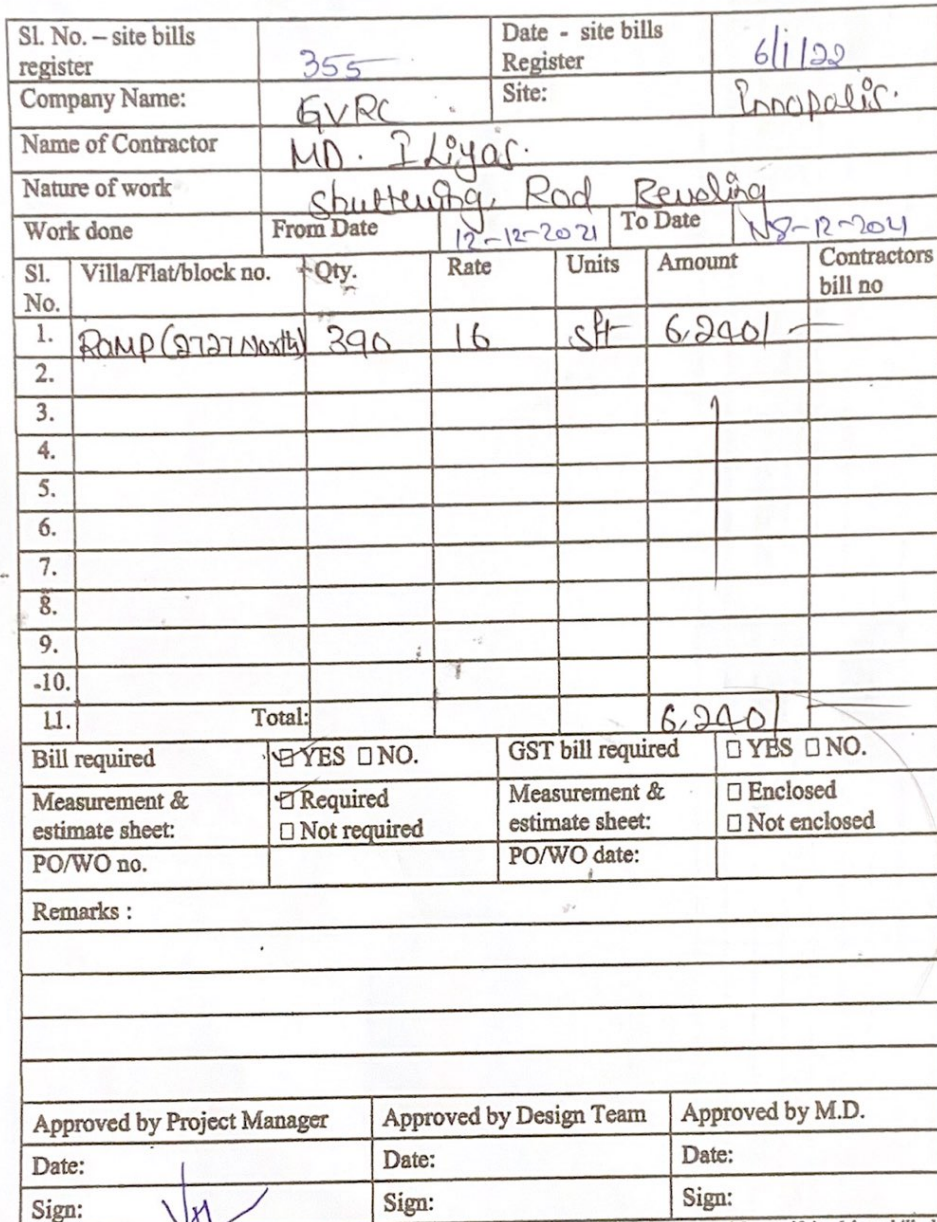 Sl. No. – site bills register 355 Date - site bills Register 6/1/22
Company Name: GVRC Site: Innopolis.
Name of Contractor MD. Iliyas.
Nature of work Shuttering, Rod
Work done From Date 12-12-2021 To Date
Sl. No. Villa/Flat/block no. Qty. Rate Units Amount Contractors bill no
1. Ramp (2727 North) 390 16 sft 6,240/-
2.
3.
4.
5.
6.
7.
8.
9.
10.
11. Total: 6,240/-
Bill required ☑ YES □ NO. GST bill required □ YES □ NO.
Measurement & estimate sheet: ☑ Required □ Not required Measurement & estimate sheet: □ Enclosed □ Not enclosed
PO/WO no. PO/WO date:
Remarks :
Approved by Project Manager Approved by Design Team Approved by M.D.
Date: Date: Date:
Sign: Sign: Sign: